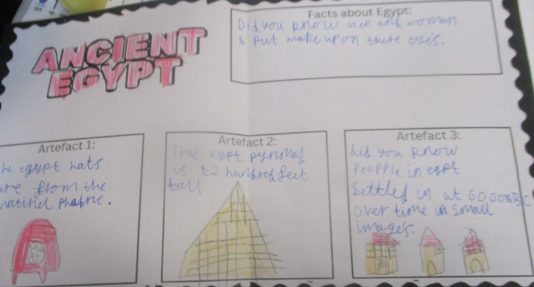 ANCIENT
EGYPT
Facts about Egypt:
Did you know men and woman
put make up on there eyes.
Artefact 1:
he egypt hats
are from the
Artefact 2:
The egpt pyrmaf
is 52 hundred feet
tall
Artefact 3:
did you know
peapple in egpt
settled in at 6000BC
over time in small
images.